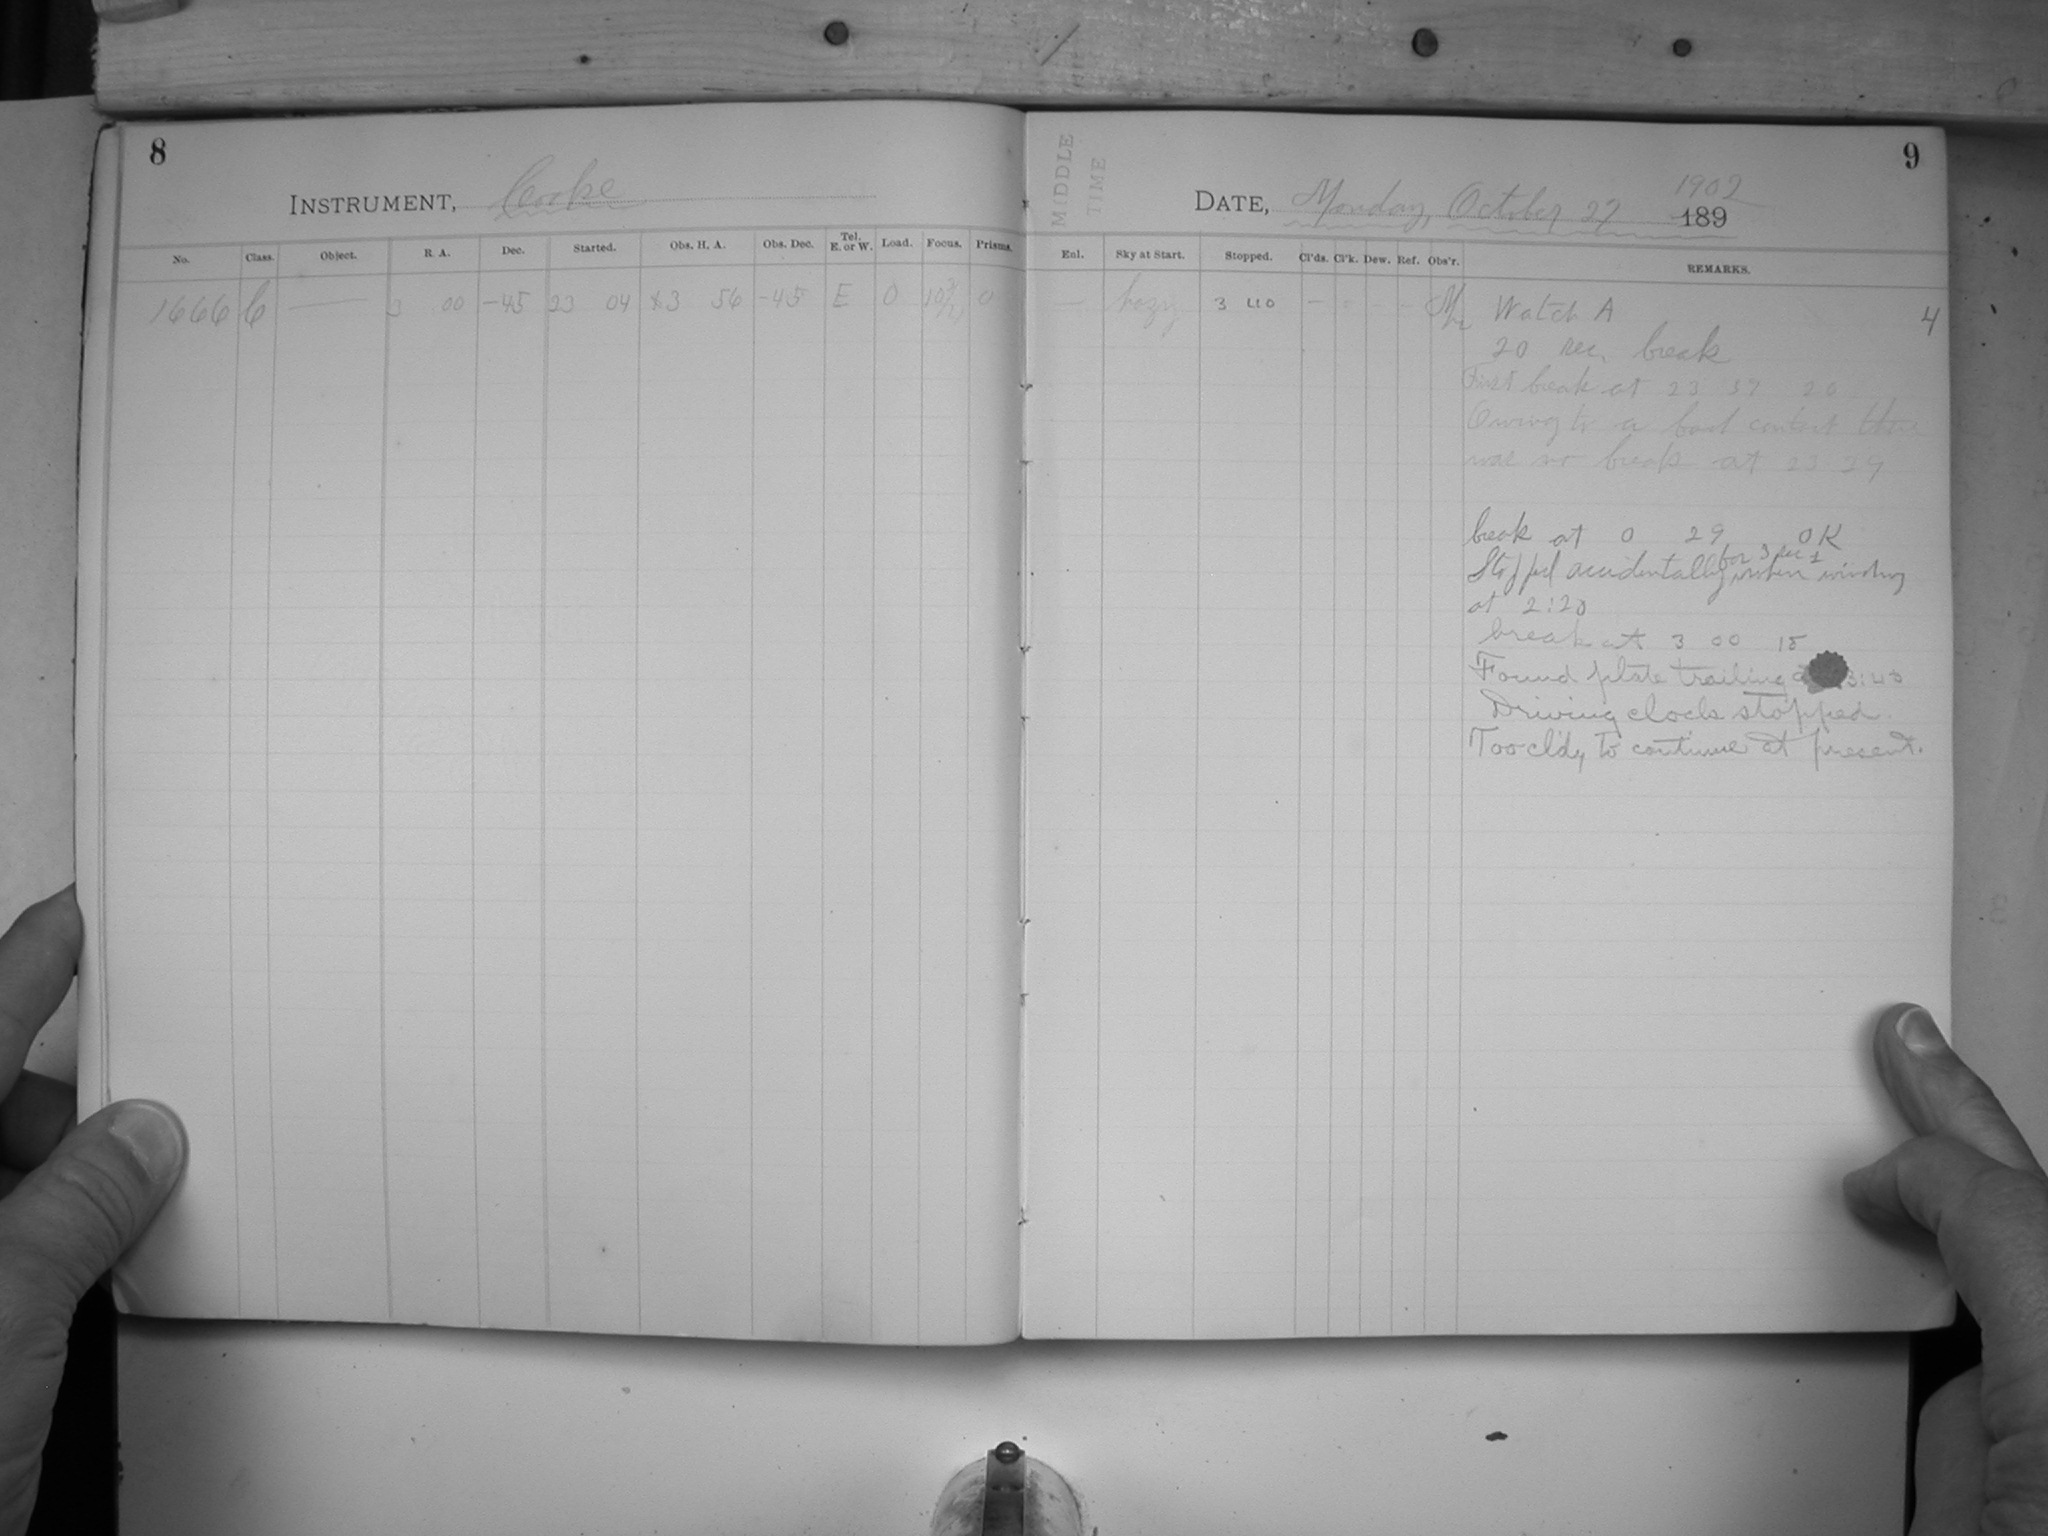 8
INSTRUMENT, Cooke
No. Class. Object. R. A. Dec. Started. Obs. H. A. Obs. Dec. Tel. E. or W. Load. Focus. Prisms.
1666 C — 3 00 -45 23 04 3 56 -45 E 0 0
MIDDLE
TIME
9
DATE, Monday, October 27 1902 189
Enl. Sky at Start. Stopped. Cl'ds. Cl'k. Dew. Ref. Obs'r. REMARKS.
— hazy 3 40 — — — — Watch A 4
20 sec. break
First break at 23 20
Owing to a bad contact there
was no break at 23 29
break at 0 29 OK
for 3 sec ±
Stopped accidentally when winding
at 2:20
break at 3 00 15
Found plate trailing 3:40
Driving clock stopped.
Too cl'dy to continue at present.